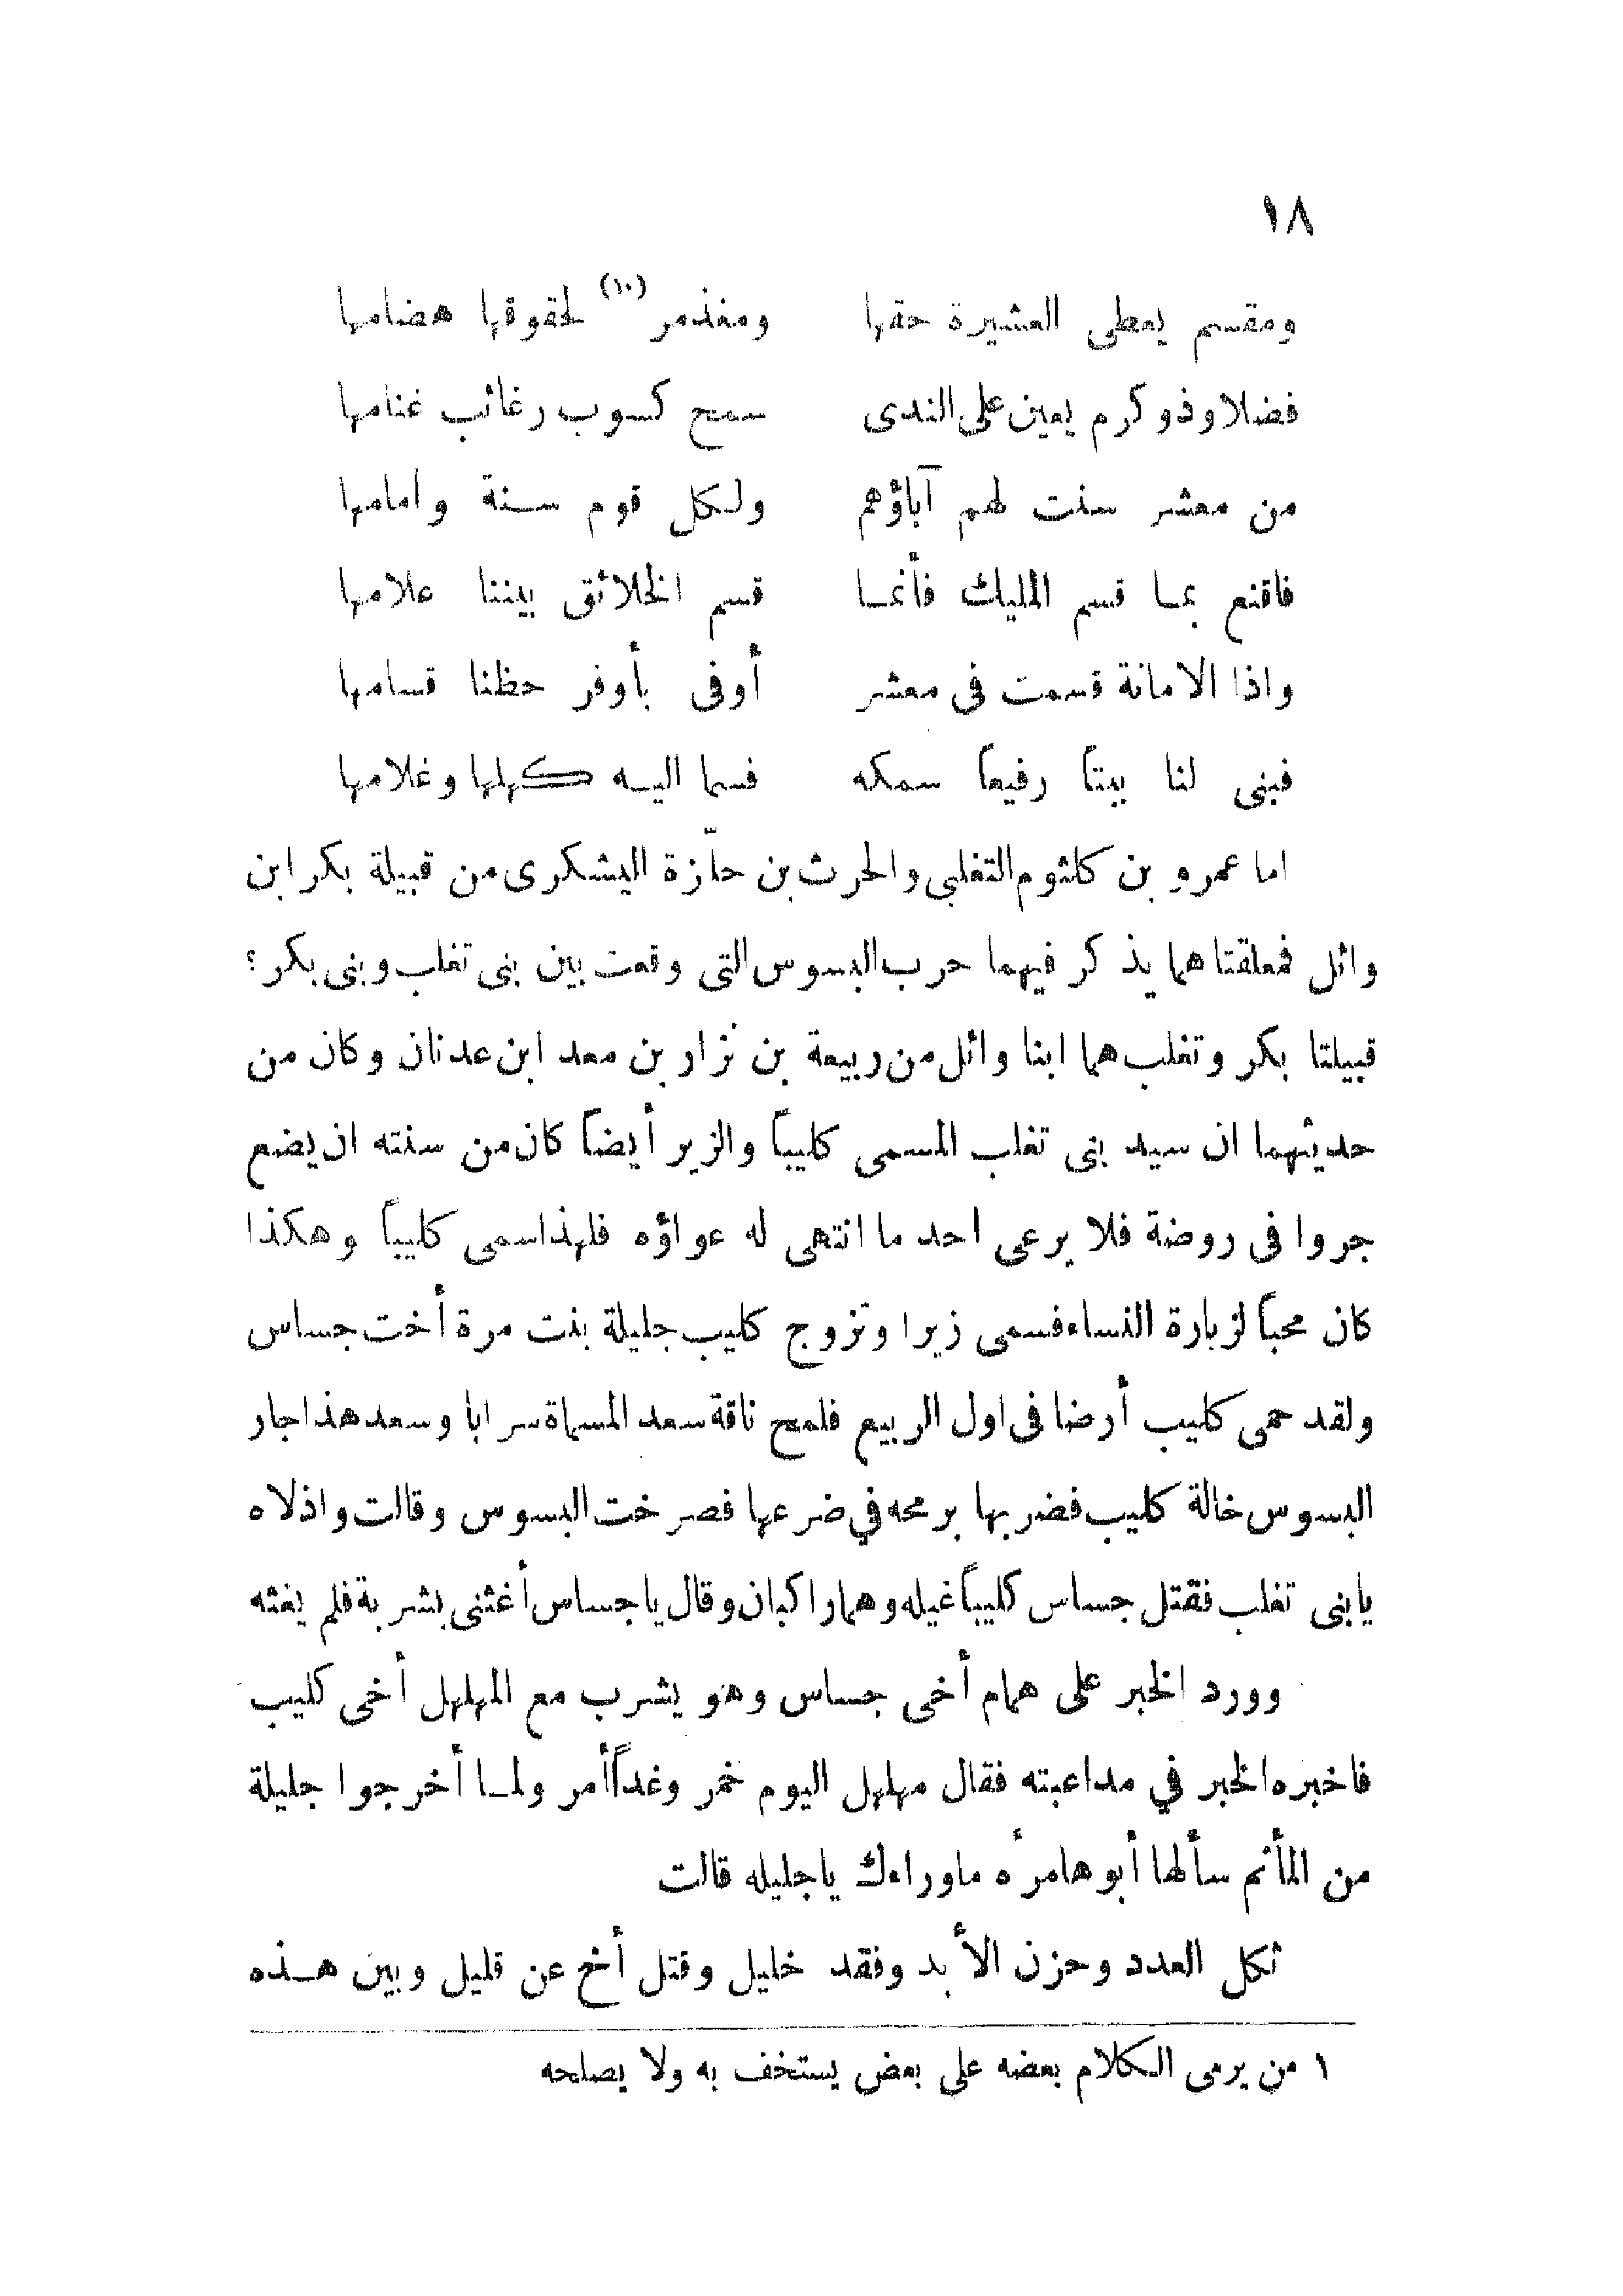 ١٨
ومقسم يعطى العشيرة حقها ومغذمر (١٠) لحقوقها هضامها
فضلا وذو كرم يعين على الندى سمح كسوب رغائب غنامها
من معشر سنت لهم آباؤهم ولكل قوم سنة وامامها
فاقنع بما قسم المليك فأنما قسم الخلائق بيننا علامها
واذا الامانة قسمت فى معشر أوفى بأوفر حظنا قسامها
فبنى لنا بيتاً رفيعاً سمكه فسما اليه كهلها وغلامها
اما عمرو بن كلثوم التغلبى والحرث بن حلّزة اليشكرى من قبيلة بكر ابن
وائل فمعلقتاهما يذكر فيهما حرب البسوس التى وقعت بين بنى تغلب وبنى بكر ؟
قبيلتا بكر وتغلب هما ابنا وائل من ربيعة بن نزار بن معد ابن عدنان وكان من
حديثهما ان سيد بنى تغلب المسمى كليباً والزير أيضاً كان من سنته ان يضع
جروا فى روضة فلا يرعى احد ما انتهى له عواؤه فلهذا سمى كليباً وهكذا
كان محباً لزيارة النساء فسمى زيرا وتزوج كليب جليلة بنت مرة أخت جساس
ولقد حمى كليب أرضا فى اول الربيع فلمح ناقة سعد المسماة سرابا وسعد هذا جار
البسوس خالة كليب فضربها برمحه في ضرعها فصرخت البسوس وقالت واذلاه
يابنى تغلب فقتل جساس كليباً غيله وهما راكبان وقال يا جساس أغثنى بشربة فلم يغثه
وورد الخبر على همام أخى جساس وهو يشرب مع المهلهل أخى كليب
فاخبره الخبر في مداعبته فقال مهلهل اليوم خمر وغداً أمر ولما أخرجوا جليلة
من المأتم سألها أبوها مرأه ماوراءك ياجليله قالت
ثكل العدد وحزن الأبد وفقد خليل وقتل أخ عن قليل وبين هذه
١ من يرمى الكلام بعضه على بعض يستخف به ولا يصلحه